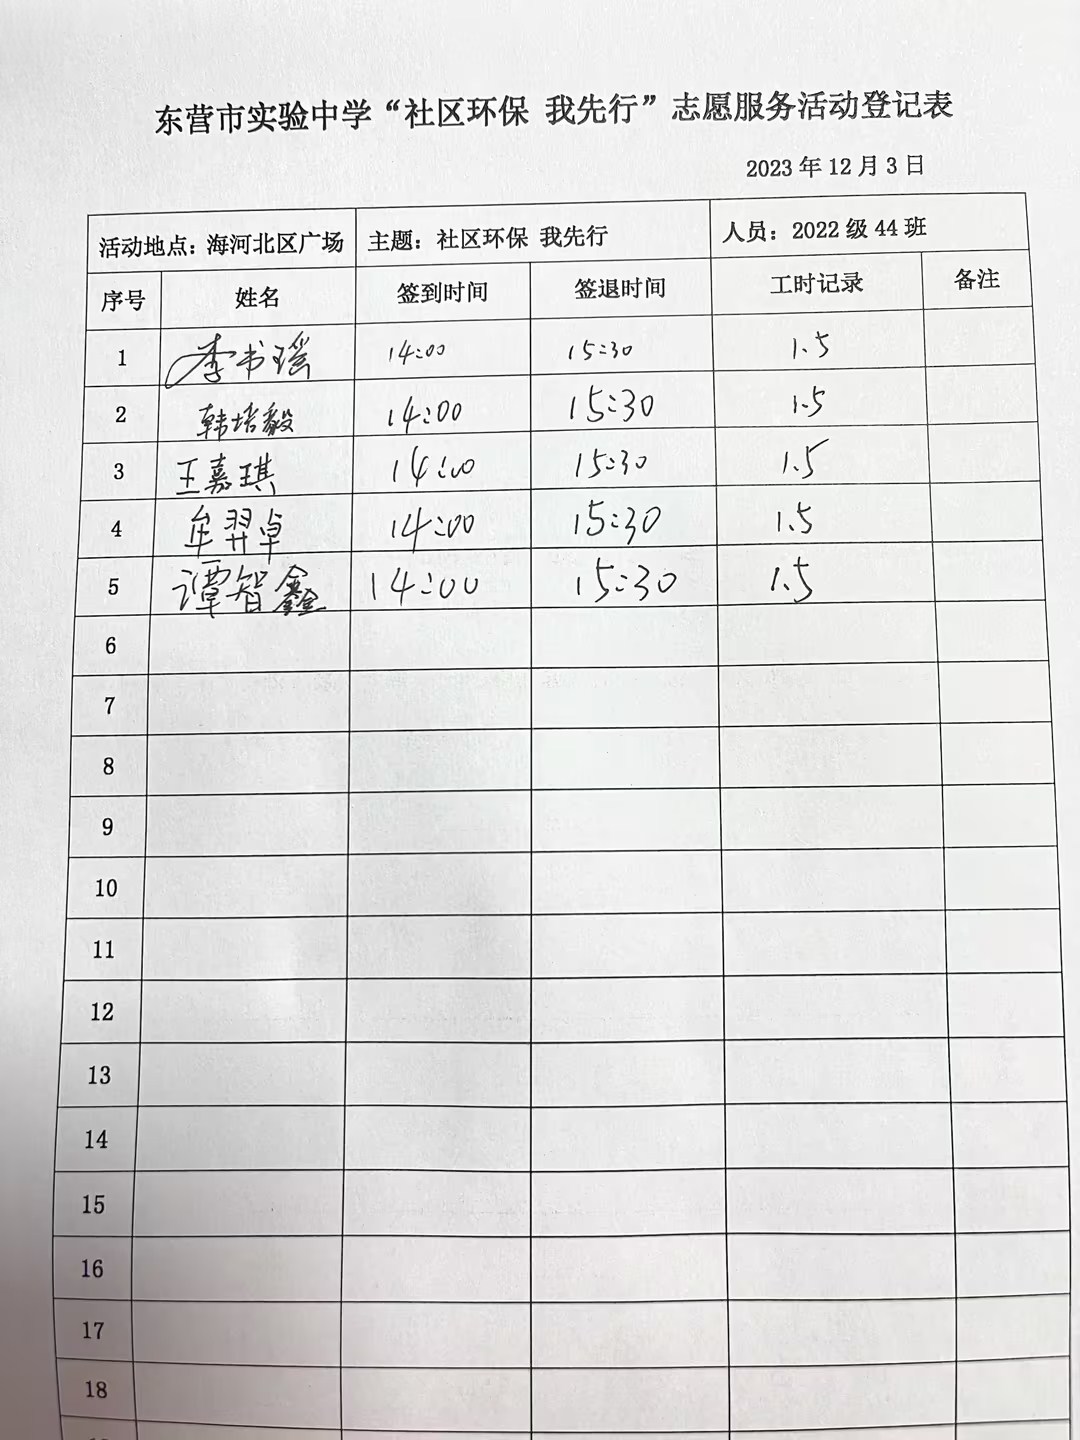 东营市实验中学“社区环保 我先行”志愿服务活动登记表
2023 年 12 月 3 日
活动地点：海河北区广场 主题：社区环保 我先行 人员：2022 级 44 班
序号 姓名 签到时间 签退时间 工时记录 备注
1 李书瑶 14:00 15:30 1.5
2 韩培毅 14:00 15:30 1.5
3 王嘉琪 14:00 15:30 1.5
4 牟羿卓 14:00 15:30 1.5
5 谭智鑫 14:00 15:30 1.5
6
7
8
9
10
11
12
13
14
15
16
17
18